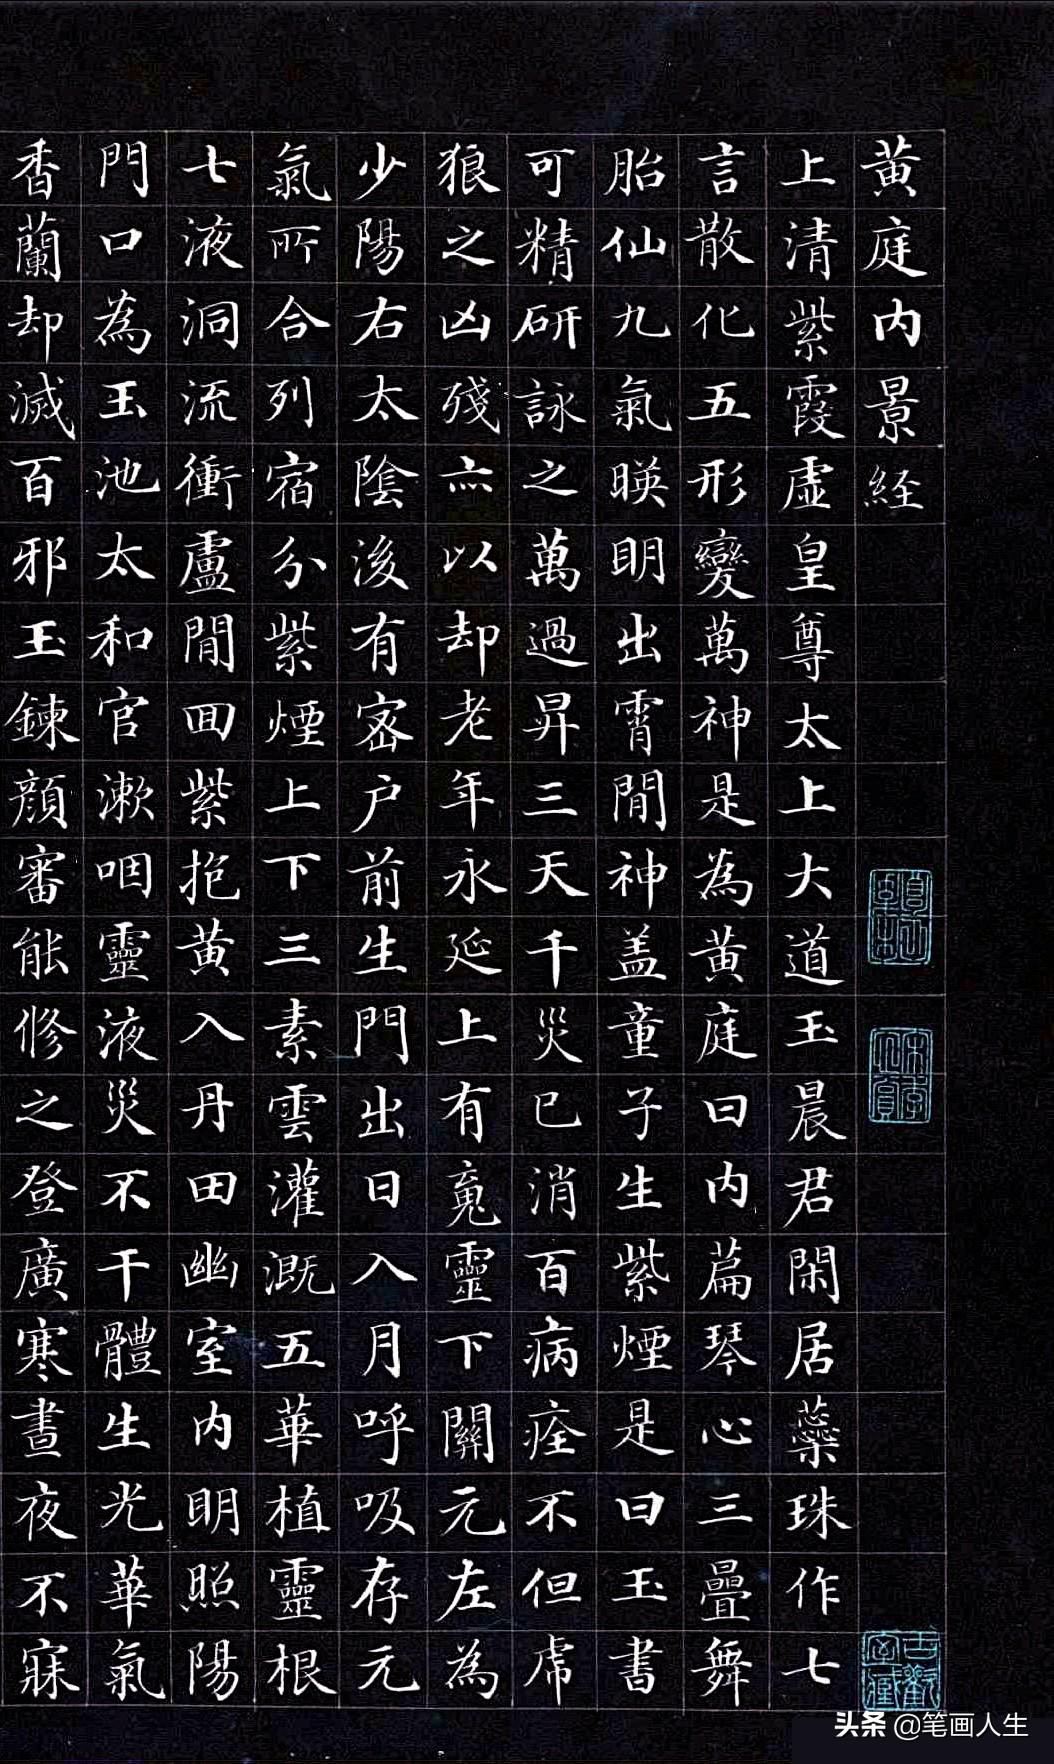 黄庭内景経
上清紫霞虛皇尊太上大道玉晨君閑居蘂珠作七
言散化五形變萬神是為黃庭曰内萹琴心三疊舞
胎仙九氣暎明出霄間神盖童子生紫煙是曰玉書
可精研詠之萬過昇三天千災已消百病痊不但虎
狼之凶殘亦以却老年永延上有䰟靈下關元左為
少陽右太陰後有密户前生門出日入月呼吸存元
氣所合列宿分紫煙上下三素雲灌溉五華植靈根
七液洞流衝盧間回紫抱黄入丹田幽室内明照陽
門口為玉池太和官漱咽靈液災不干體生光華氣
香蘭却滅百邪玉鍊顔審能修之登廣寒晝夜不寐
头条 @笔画人生